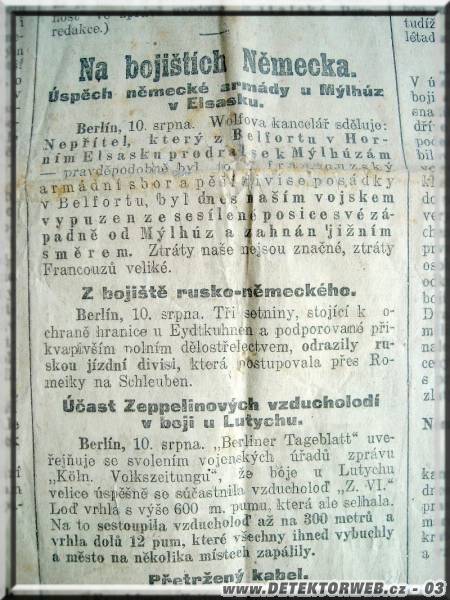 redakce.)
Na bojištích Německa.
Úspěch německé armády u Mýlhúz
v Elsasku.
Berlín, 10. srpna. Wolfova kancelář sděluje:
Nepřítel, který z Belfortu v Hor-
ním Elsasku prodral se k Mýlhúzám
— pravděpodobně byl to 7. francouzský
armádní sbor a pěší divise posádky
v Belfortu, byl dnes naším vojskem
vypuzen ze sesílené posice své zá-
padně od Mýlhúz a zahnán jižním
směrem. Ztráty naše nejsou značné, ztráty
Francouzů veliké.
Z bojiště rusko-německého.
Berlín, 10. srpna. Tři setniny, stojící k o-
chraně hranice u Eydtkuhnen a podporované při-
kvapivším polním dělostřelectvem, odrazily ru-
skou jízdní divisi, která postupovala přes Ro-
meiky na Schleuben.
Účast Zeppelinových vzducholodí
v boji u Lutychu.
Berlín, 10. srpna. „Berliner Tageblatt" uve-
řejňuje se svolením vojenských úřadů zprávu
„Köln. Volkszeitungu", že boje u Lutychu
velice úspěšně se súčastnila vzducholoď „Z. VI."
Loď vrhla s výše 600 m. pumu, která ale selhala.
Na to sestoupila vzducholoď až na 300 metrů a
vrhla dolů 12 pum, které všechny ihned vybuchly
a město na několika místech zapálily.
Přetržený kabel.
www.DETEKTORWEB.cz - 03